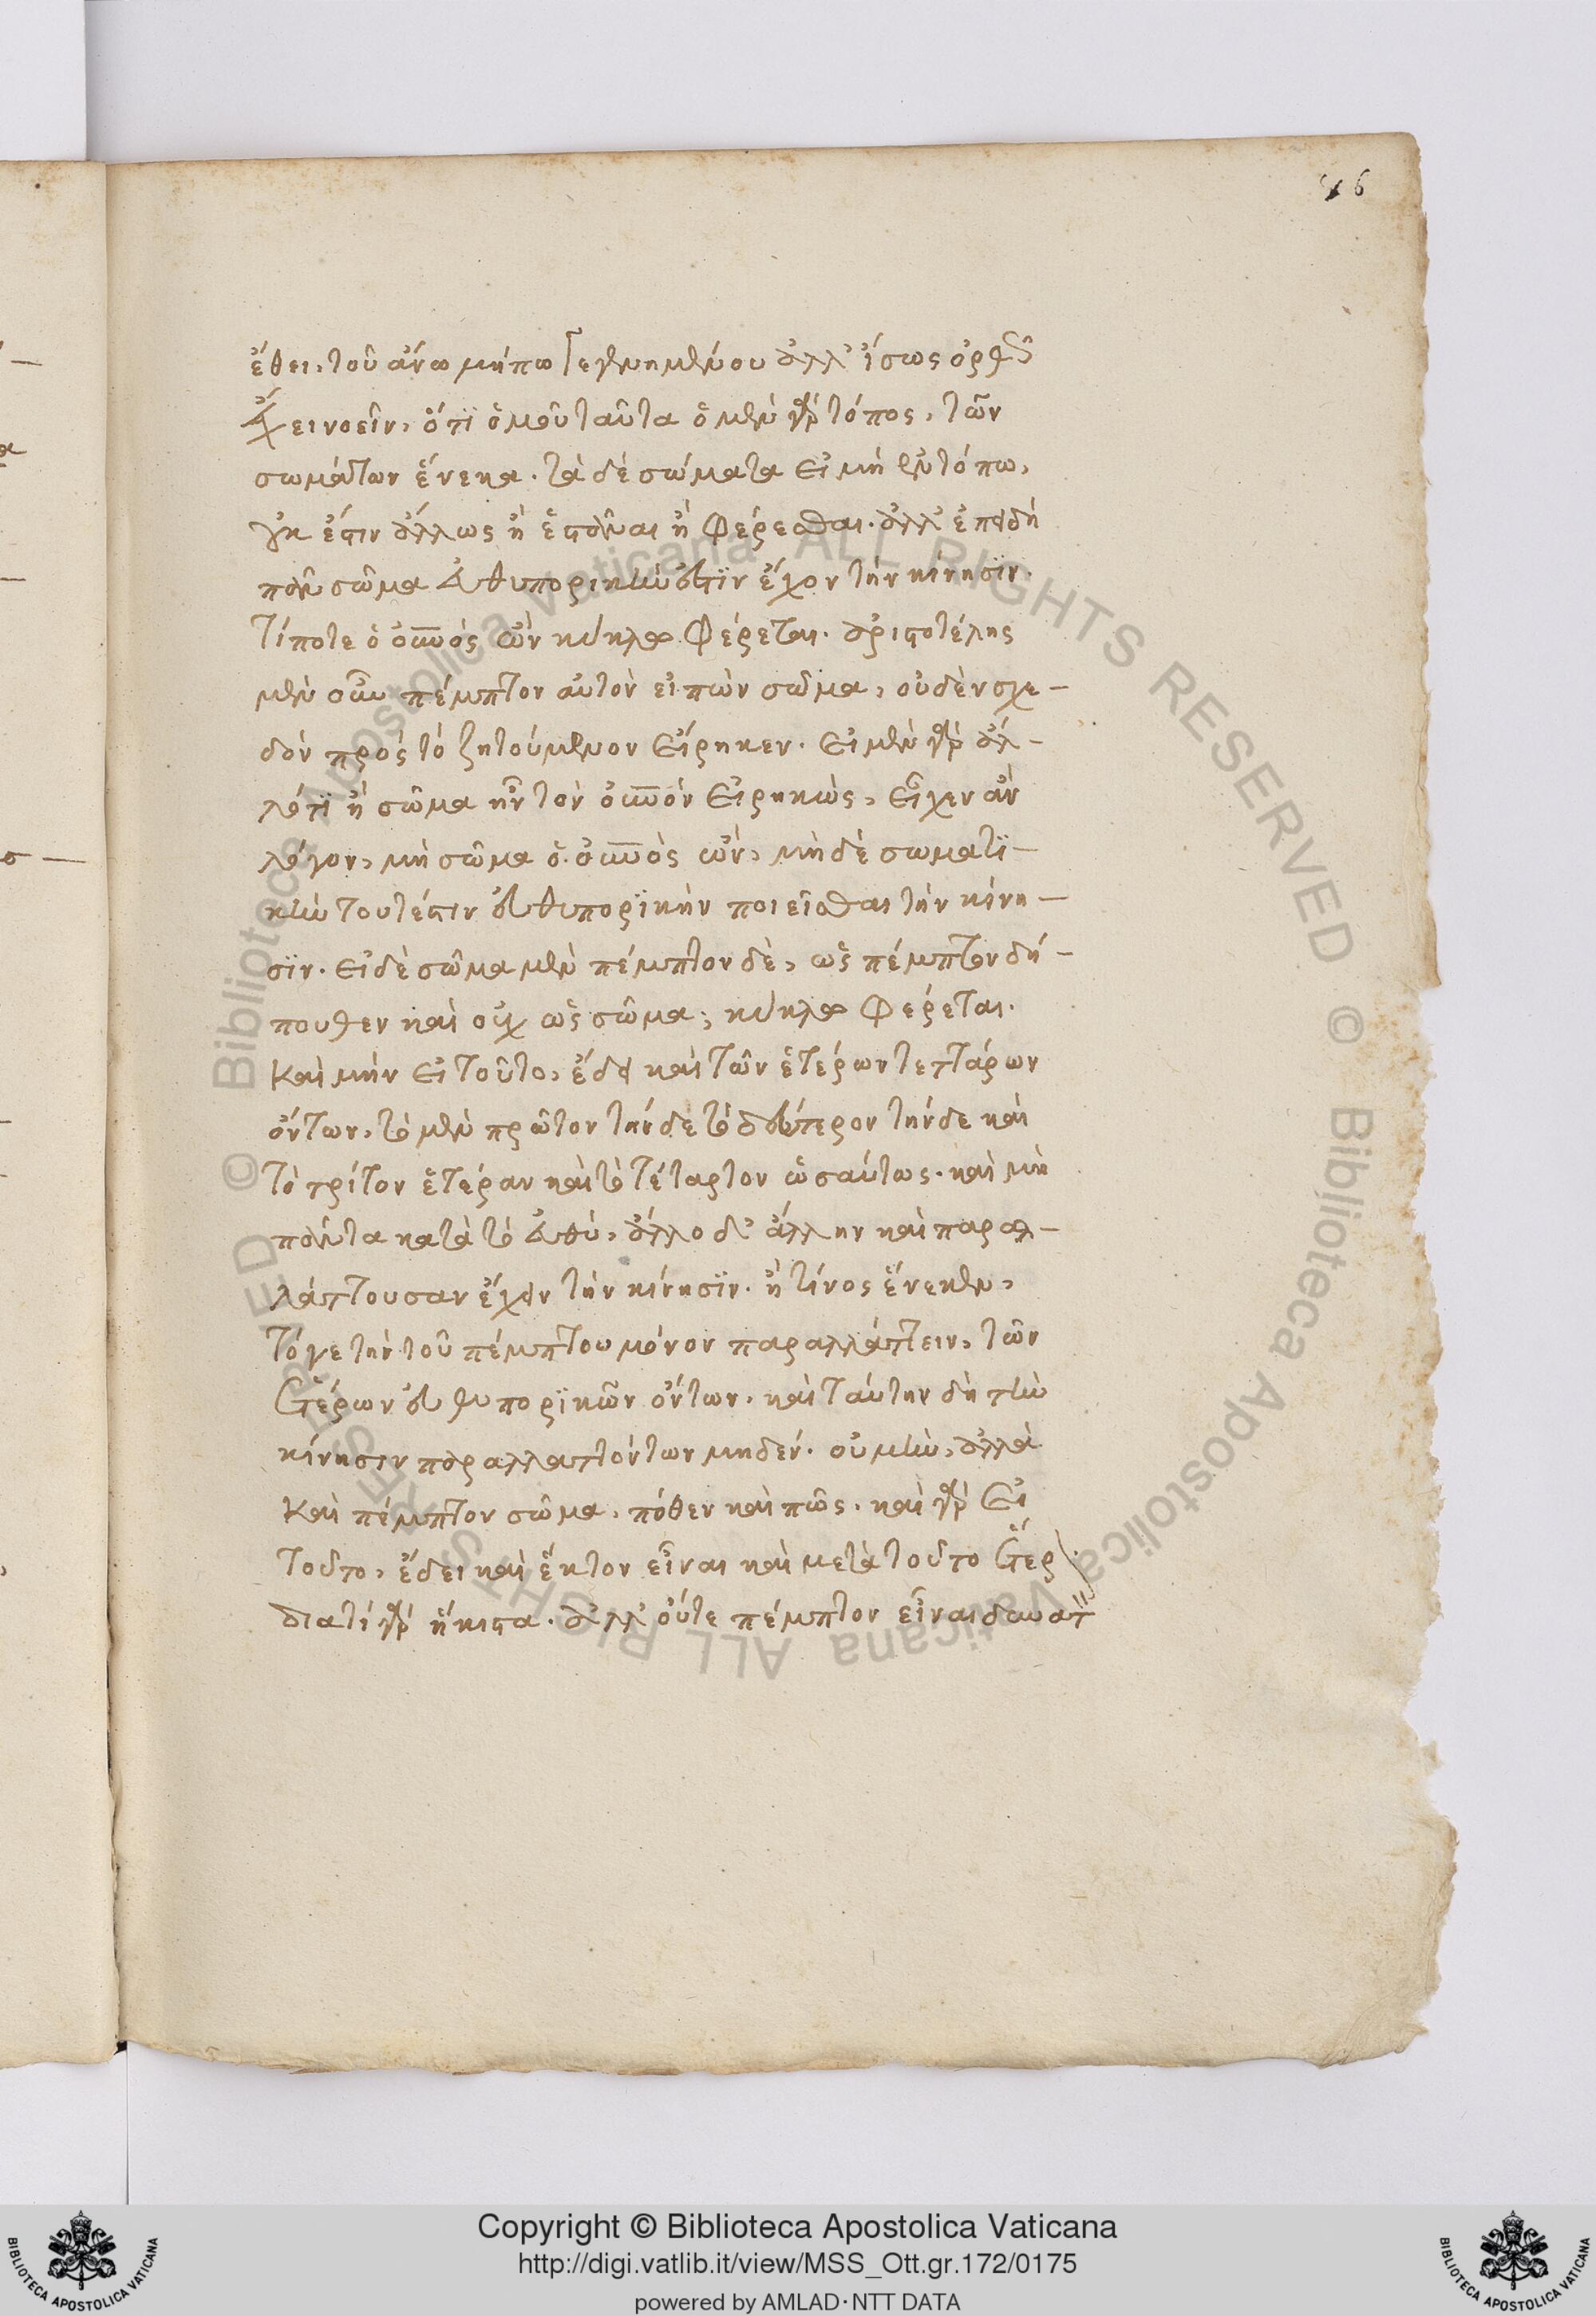 46
ἔθει, τοῦ ἄνω μήπω γεγενημένου ἀλλ' ἴσως ὀρθῶς
ἔχει νοεῖν, ὅτι ὁμοῦ ταῦτα ὁ μὲν γὰρ τόπος, τῶν
σωμάτων ἕνεκα. τὰ δὲ σώματα εἰ μὴ ἐν τόπω,
οὐκ ἔστιν ἄλλως ἢ ἑστάναι ἢ φέρεσθαι. ἀλλ' ἐπειδὴ
πᾶν σῶμα εὐθυπορικήν ἐστιν ἔχον τὴν κίνησιν.
τί ποτε ὁ οὐνὸς ὢν κύκλω φέρεται. ἀριστοτέλης
μὲν οὖν πέμπτον αὐτὸν εἰπὼν σῶμα, οὐδὲν σχε-
δὸν πρὸς τὸ ζητούμενον εἴρηκεν. εἰ μὲν γὰρ ἄλ-
λότι ἢ σῶμα ἦν τὸν οὐνὸν εἰρηκὼς, εἶχεν ἂν
λόγον, μὴ σῶμα ὁ οὐνὸς ὢν, μὴ δὲ σωματι-
κὴν τουτέστιν εὐθυπορικὴν ποιεῖσθαι τὴν κίνη-
σιν. εἰ δὲ σῶμα μὲν πέμπτον δὲ, ὡς πέμπτον δή-
πουθεν καὶ οὐχ ὡς σῶμα, κύκλω φέρεται.
καὶ μὴν εἰ τοῦτο, ἔδει καὶ τῶν ἑτέρων τεττάρων
ὄντων, τὸ μὲν πρῶτον τήνδε τὸ δεύτερον τήνδε καὶ
τὸ τρίτον ἑτέραν καὶ τὸ τέταρτον ὡσαύτως. καὶ μὴ
πάντα κατὰ τὸ εὐθύ, ἄλλο δ' ἄλλην καὶ παραλ-
λάττουσαν ἔχειν τὴν κίνησιν. ἢ τίνος ἕνεκεν,
τό γε τὴν τοῦ πέμπτου μόνον παραλλάττειν, τῶν
ἑτέρων εὐθυπορικῶν ὄντων. καὶ ταύτην δὴ τὴν
κίνησιν παραλλαττόντων μηδέν. οὐ μὴν, ἀλλὰ
καὶ πέμπτον σῶμα, πόθεν καὶ πῶς. καὶ γὰρ εἰ
τοῦτο, ἔδει καὶ ἕκτον εἶναι καὶ μετὰ τοῦτο ἕτερον.
διατί γὰρ ἥκιστα. ἀλλ' οὔτε πέμπτον εἶναι δυνατὸν
Copyright © Biblioteca Apostolica Vaticana
http://digi.vatlib.it/view/MSS_Ott.gr.172/0175
powered by AMLAD·NTT DATA
BIBLIOTECA APOSTOLICA VATICANA
BIBLIOTECA APOSTOLICA VATICANA
© Biblioteca Apostolica Vaticana ALL RIGHTS RESERVED
© Biblioteca Apostolica Vaticana ALL RIGHTS RESERVED